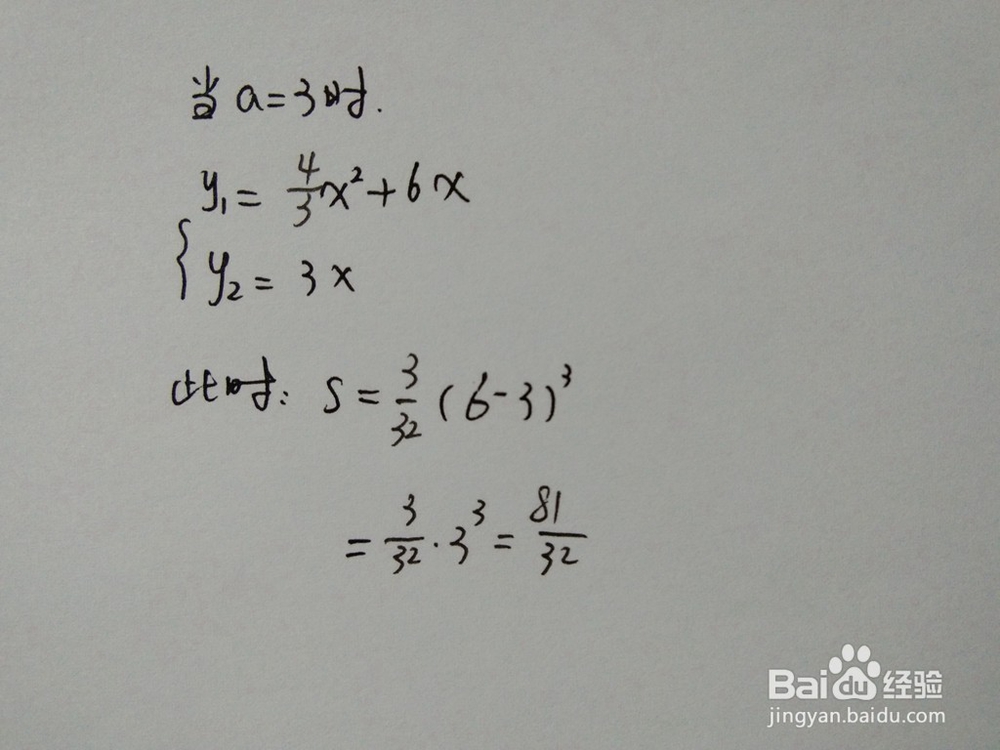 当 a=3时.
y₁ = 4/3 x² + 6x
{ y₂ = 3x
此时: S = 3/32 (6-3)³
= 3/32 · 3³ = 81/32
Baidu经验
jingyan.baidu.com